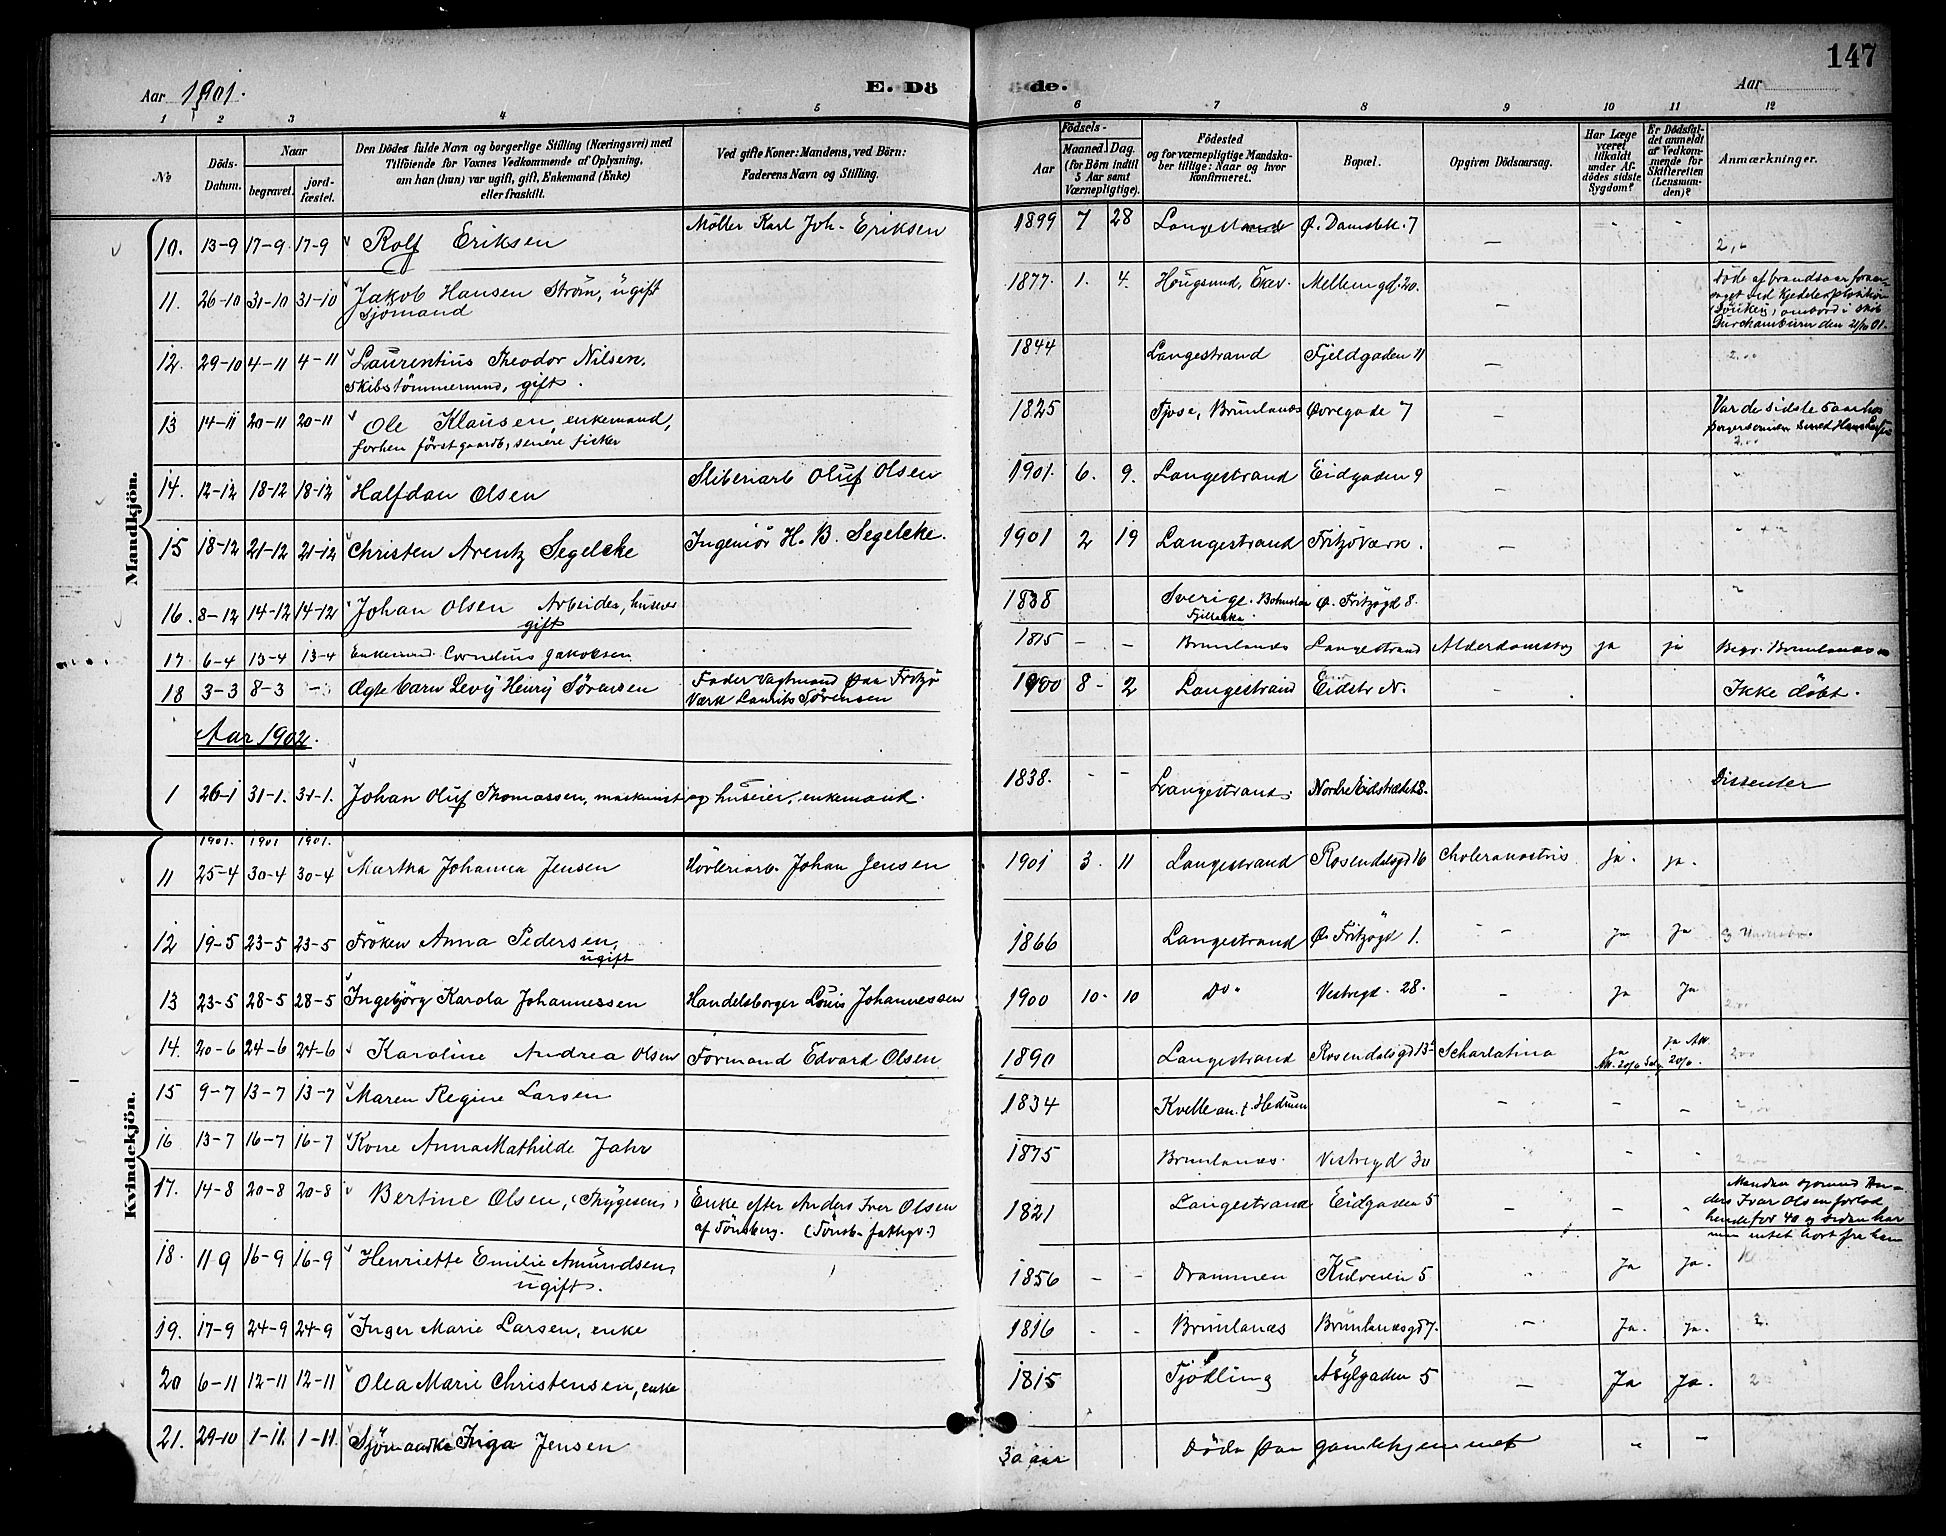 147
Aar 1901. E. Dö de. Aar
1 2 3 4 5 6 7 8 9 10 11 12
No
Döds-Datum.
Naar
begravet.
jordfæstet.
Den Dödes fulde Navn og borgerlige Stilling (Næringsvei) med
Tilföiende for Voxnes Vedkommende af Oplysning,
om han (hun) var ugift, gift, Enkemand (Enke)
eller fraskilt.
Ved gifte Koner: Mandens, ved Börn:
Faderens Navn og Stilling.
Födsels-
Aar
Maaned. Dag.
(for Börn indtil
5 Aar samt
Værnepligtige).
Födested
og for værnepligtige Mandska-
ber tillige: Naar og hvor
konfirmeret.
Bopæl.
Opgiven Dödsaarsag.
Har Læge
været
tilkaldt
under Af-
dödes sidste
Sygdom?
Er Dödsfal-
det anmeldt
af Vedkom-
mende for
Skifteretten
(Lensman-
den)?
Anmærkninger.
Mandkjön.
10. 13-9 17-9 17-9 Rolf Eriksen Möller Karl Joh. Eriksen 1899 7 28 Langestrand Ö. Damsbk. 7 -
11. 26-10 31-10 31-10 Jakob Hansen Ström, ugift 1877. 1. 4. Hougsund, Eker. Mellemgd. 20. -
Sjömand
Döde af brandsaar foraar-
saget ved kjedelexplosion
den 21/10 01.
12. 29-10 4-11 4-11 Laurentius Theodor Nilsen. 1844 Langestrand Fjeldgaden 11 - 2.00
Skibstömmermnd, gift.
13 14-11 20-11 20-11 Ole Klausen, enkemand, 1825 Tjose, Brunlanes Övregade 7 - Var de sidste 5 aar hos
forhen först gaardb, senere fisker
2.00
14. 12-12 18-12 18-12 Halfdan Olsen Sliberiarb Oluf Olsen 1901. 6. 9. Langestrand Eidgaden 9 -
15 18-12 21-12 21-12 Christen Arentz Segelcke Ingeniör H. B. Segelcke. 1901 2 19 Langestrand Fritzöværk. -
16. 8-12 14-12 14-12 Johan Olsen Arbeider, huseier 1838 Sverige. Bohuslen Ö. Fritzögd 8.
gift
17 6-4 13-4 13-4 Enkemand Cornelius Jakobsen 1815 - - Brunlanes Langestrand Alderdomssvag ja ja Begr. Brunlanes
18 3-3 8-3 - Ægte barn Levy Henry Sörensen Fader Vagtmand paa Fritzö 1900 8 - 2 Langestrand Eidstr N. - Ikke döbt.
Værk Laurits Sörensen
Aar 1902.
1 26-1 31-1. 31-1. Johan Oluf Thomassen, maskinist og huseier, enkemand. 1838. - - Langestrand. Nordre Eidstrædet 8. Dissenter
Kvindekjön.
1901. 1901 1901.
11 25-4 30-4 30-4 Martha Johanna Jensen Hövleriarb. Johan Jensen 1901 3. 11 Langestrand Rosendalsgd 16 Choleranostris ja. ja.
12 19-5 23-5 23-5 Fröken Anna Pedersen, 1866 Langestrand Ö. Fritzögd 1. - Ja Ja
ugift
13 23-5 28-5 28-5 Ingebjörg Karola Johannessen Handelsborger Louis Johannessen 1900 10- 10 Do. Vestregd. 28. - Ja Ja 2.00
14. 20-6 24-6 24-6 Karoline Andrea Olsen Formand Edvard Olsen 1890 Langestrand Rosendalsgd 13 Scharlatina ja ja 2.00
15 9-7 13-7 13-7 Maren Regine Larsen 1834 Kvelle an. t. Hedrum - - -
16 13-7 16-7 16-7 Kone Anna Mathilde Jahr 1875 Brunlanes. Vestregd 30 2.00
17. 14-8 20-8 20-8 Bertine Olsen, (Thygesen) Enke efter Anders Iver Olsen 1821 Langestrand Eidgaden 5 - -
af Tönsberg.
Manden sjömand An-
ders Ivar Olsen forlod
hende for 40 og siden har
man intet hört fra ham
18. 11-9 16-9 16-9 Henriette Emilie Amundsen, 1856 - - Drammen Kulveien 5 Ja Ja.
ugift.
19. 17-9 24-9 24-9 Inger Marie Larsen, enke 1816 - - Brunlanes Brunlanesgd 7. - Ja. Ja. 2.
20 6-11 12-11 12-11 Olea Marie Christensen, enke 1815 Tjödling Asylgaden 5 - Ja Ja. 2
21. 29-10 1-11. 1-11. Inga Jensen 30 aar Döde paa gamlehjemmet - -